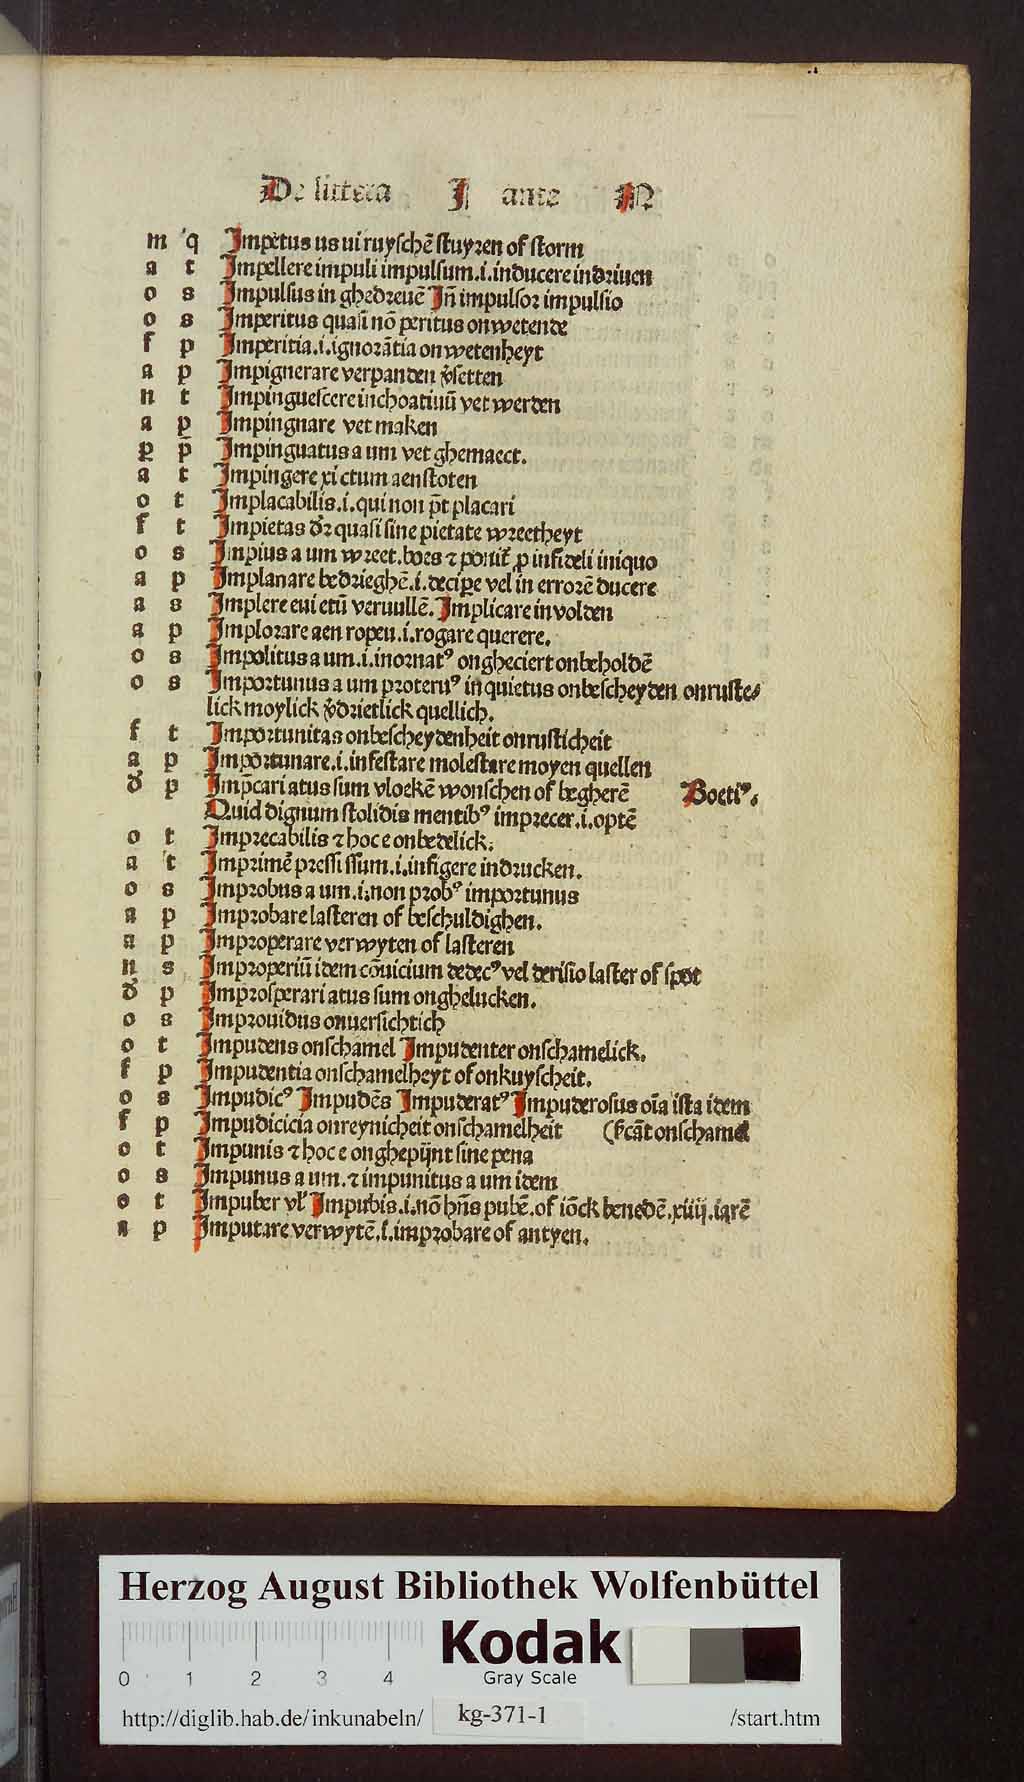 De littera J ante M
m q Jmpetus us ui ruyschē stuyren of storm
a t Jmpellere impuli impulsum.i.inducere indriuen
o s Jmpulsus in ghedreuē Jn̄ impulsor impulsio
o s Jmperitus quasi nō peritus onwetende
f p Jmperitia.i.ignorātia onwetenheyt
a p Jmpignerare verpanden v̄setten
n t Jmpinguescere inchoatiuū vet werden
a p Jmpingnare vet maken
ꝑ p̄ Jmpinguatus a um vet ghemaect.
a t Jmpingere xi ctum aenstoten
o t Jmplacabilis.i.qui non p̄t placari
f t Jmpietas dr̄ quasi sine pietate wreetheyt
o s Jmpius a um wreet.boes ⁊ ponit̄ ꝓ infideli iniquo
a p Jmplanare bedrieghē.i.deciꝑe vel in errorē ducere
a s Jmplere eui etū veruullē.Jmplicare involden
a p Jmplorare aen ropen.i.rogare querere.
o s Jmpolitus a um.i.inornatꝰ ongheciert onbeholdē
o s Jmportunus a um proteruꝰ inquietus onbescheyden onruste⸗
lick moylick v̄drietlick quellich.
f t Jmportunitas onbescheydenheit onrusticheit
a p Jmportunare.i.infestare molestare moyen quellen
d̄ p Jmp̄cari atus sum vloekē wonschen of begherē Boetiꝰ.
Quid dignum stolidis mentibꝰ imprecer.i.optē
o t Jmprecabilis ⁊ hoc e onbedelick.
a t Jmprimē pressi ssum.i.infigere indrucken.
o s Jmprobus a um.i.non probꝰ importunus
a p Jmprobare lasteren of beschuldighen.
a p Jmproperare verwyten of lasteren
n s Jmproperiū idem cōuicium dedecꝰ vel derisio laster of spot
d̄ p Jmprosperari atus sum onghelucken.
o s Jmprouidus onuersichtich
o t Jmpudens onschamel Jmpudenter onschamelick.
f p Jmpudentia onschamelheyt of onkuyscheit.
o s Jmpudicꝰ Jmpudēs Jmpuderatꝰ Jmpuderosus oīa ista idem
f p Jmpudicicia onreynicheit onschamelheit (scāt onschamel
o t Jmpunis ⁊ hoc e onghepijnt sine pena
o s Jmpunus a um.⁊ impunitus a um idem
o t Jmpuber vl̄ Jmpubis.i.nō hn̄s pubē.of iōck benedē.xiiij.iarē
a p Jmputare verwytē.s.improbare of antyen.
Herzog August Bibliothek Wolfenbüttel
0 1 2 3 4
Kodak
Gray Scale
http://diglib.hab.de/inkunabeln/ kg-371-1 /start.htm